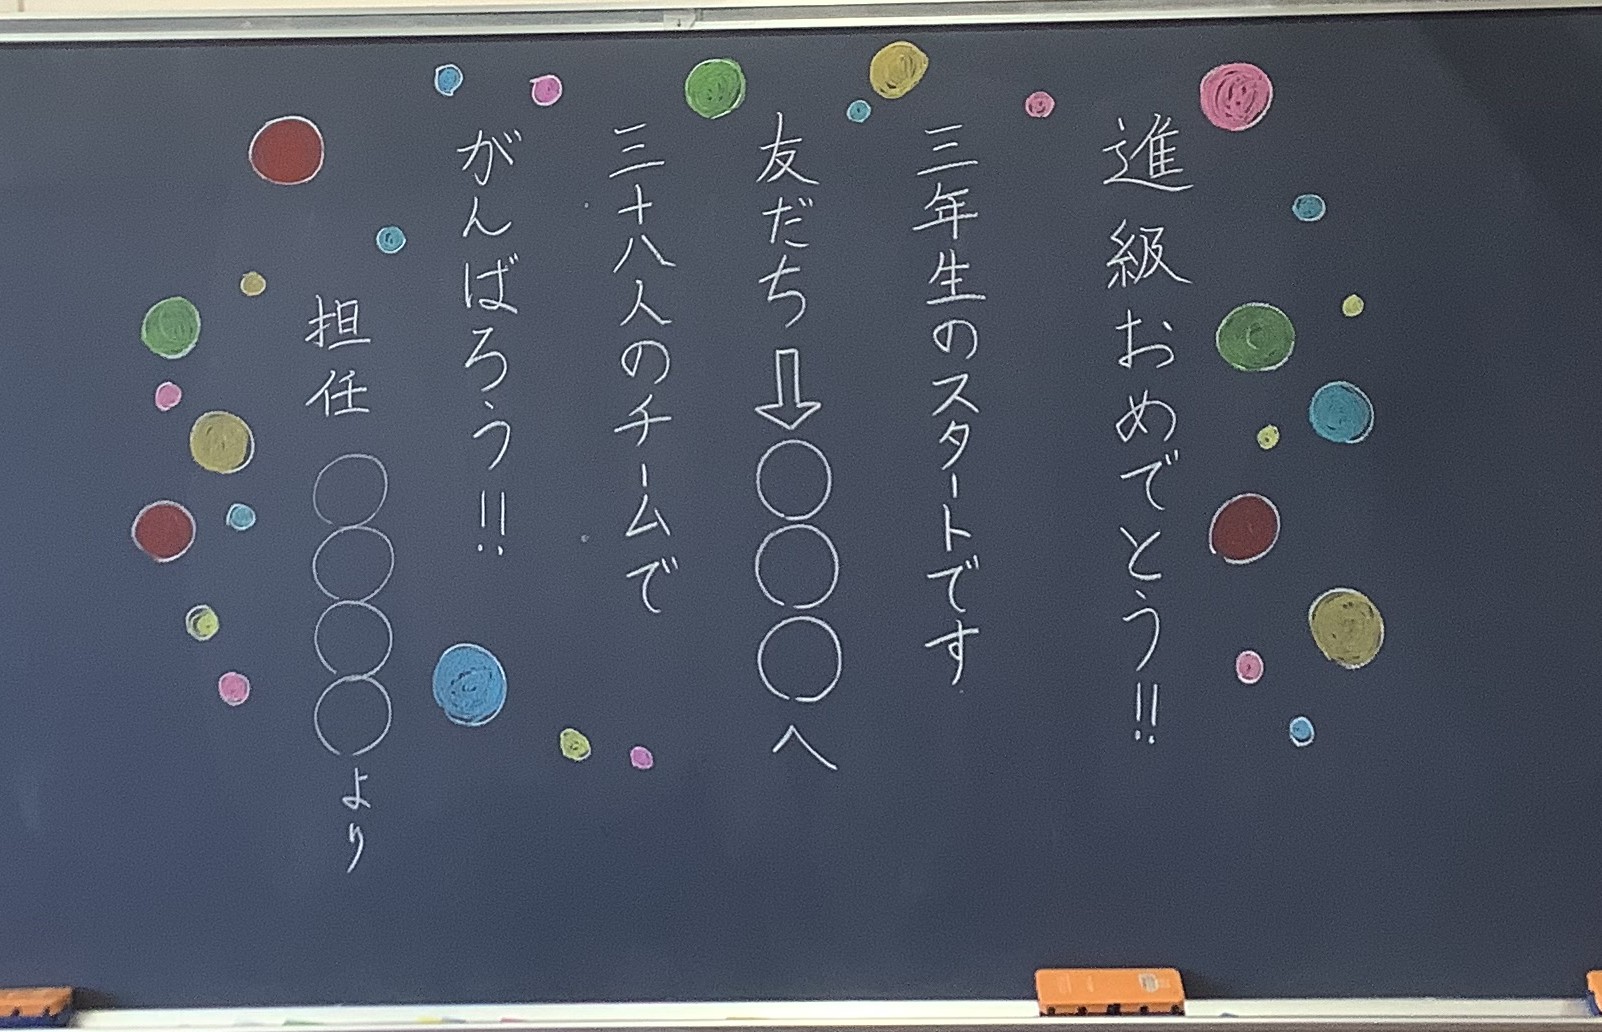 進級おめでとう!!
三年生のスタートです
友だち⇩○○○へ
三十八人のチームで
がんばろう!!
担任○○○○より